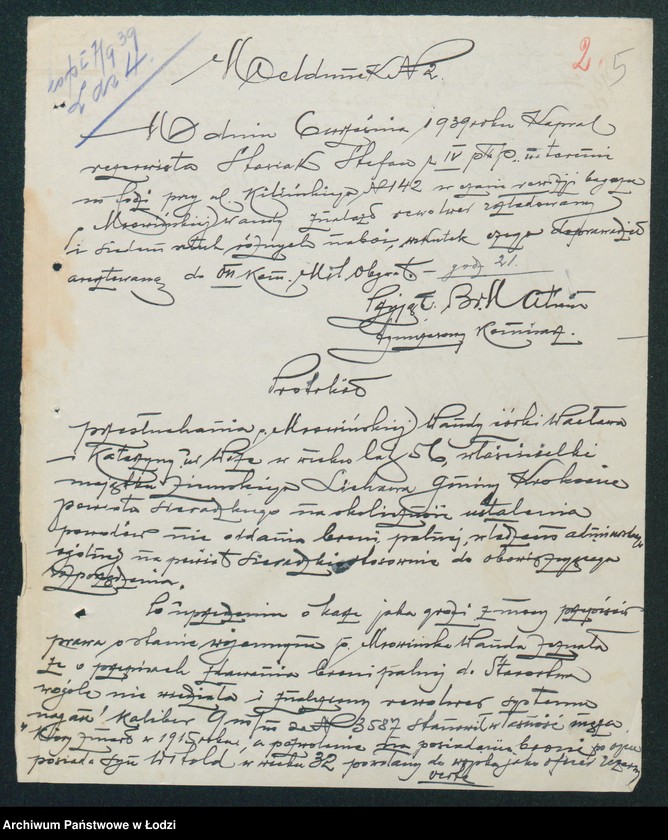 2. 5
Meldunek № 2.
W dniu 6 września 1939 roku Kapral
rezerwista Stasiak Stefan z IV p.
w Łodzi przy ul. Kilińskiego № 142 w czasie rewizji bagażu
p. Mrowińskiej Wandy znalazł rewolwer
i siedem sztuk różnych naboi, wskutek czego doprowadził
aresztowaną do VII Kom. Mil. Obywat. – godz 21.
Przyjął: Br.
Dyżurny Komisarz.
Protokół
przesłuchania p. Mrowińskiej Wandy córki Wacława
i Katarzyny w wieku lat 56, właścicielki
majątku ziemskiego Lichawa Gminy Krokocice
powiatu sieradzkiego na okoliczność ustalenia
powodów nie oddania broni palnej władzom
na powiat Sieradzki stosownie do obowiązującego
rozporządzenia.
Po uprzedzeniu o karze jaka grozi z mocy przepisów
prawa o stanie wojennym p. Mrowińska Wanda zeznała
że o przepisach zdawania broni palnej do Starostwa
wogóle nie wiedziała i znaleziony rewolwer systemu
nagan kaliber 9 m/m za № 3587 stanowił własność męża
który zmarł w 1915 roku, a pozwolenie na posiadanie broni po ojcu
posiada syn Witold w wieku 32 powołany do wojska jako oficer rezerwy
Archiwum Państwowe w Łodzi